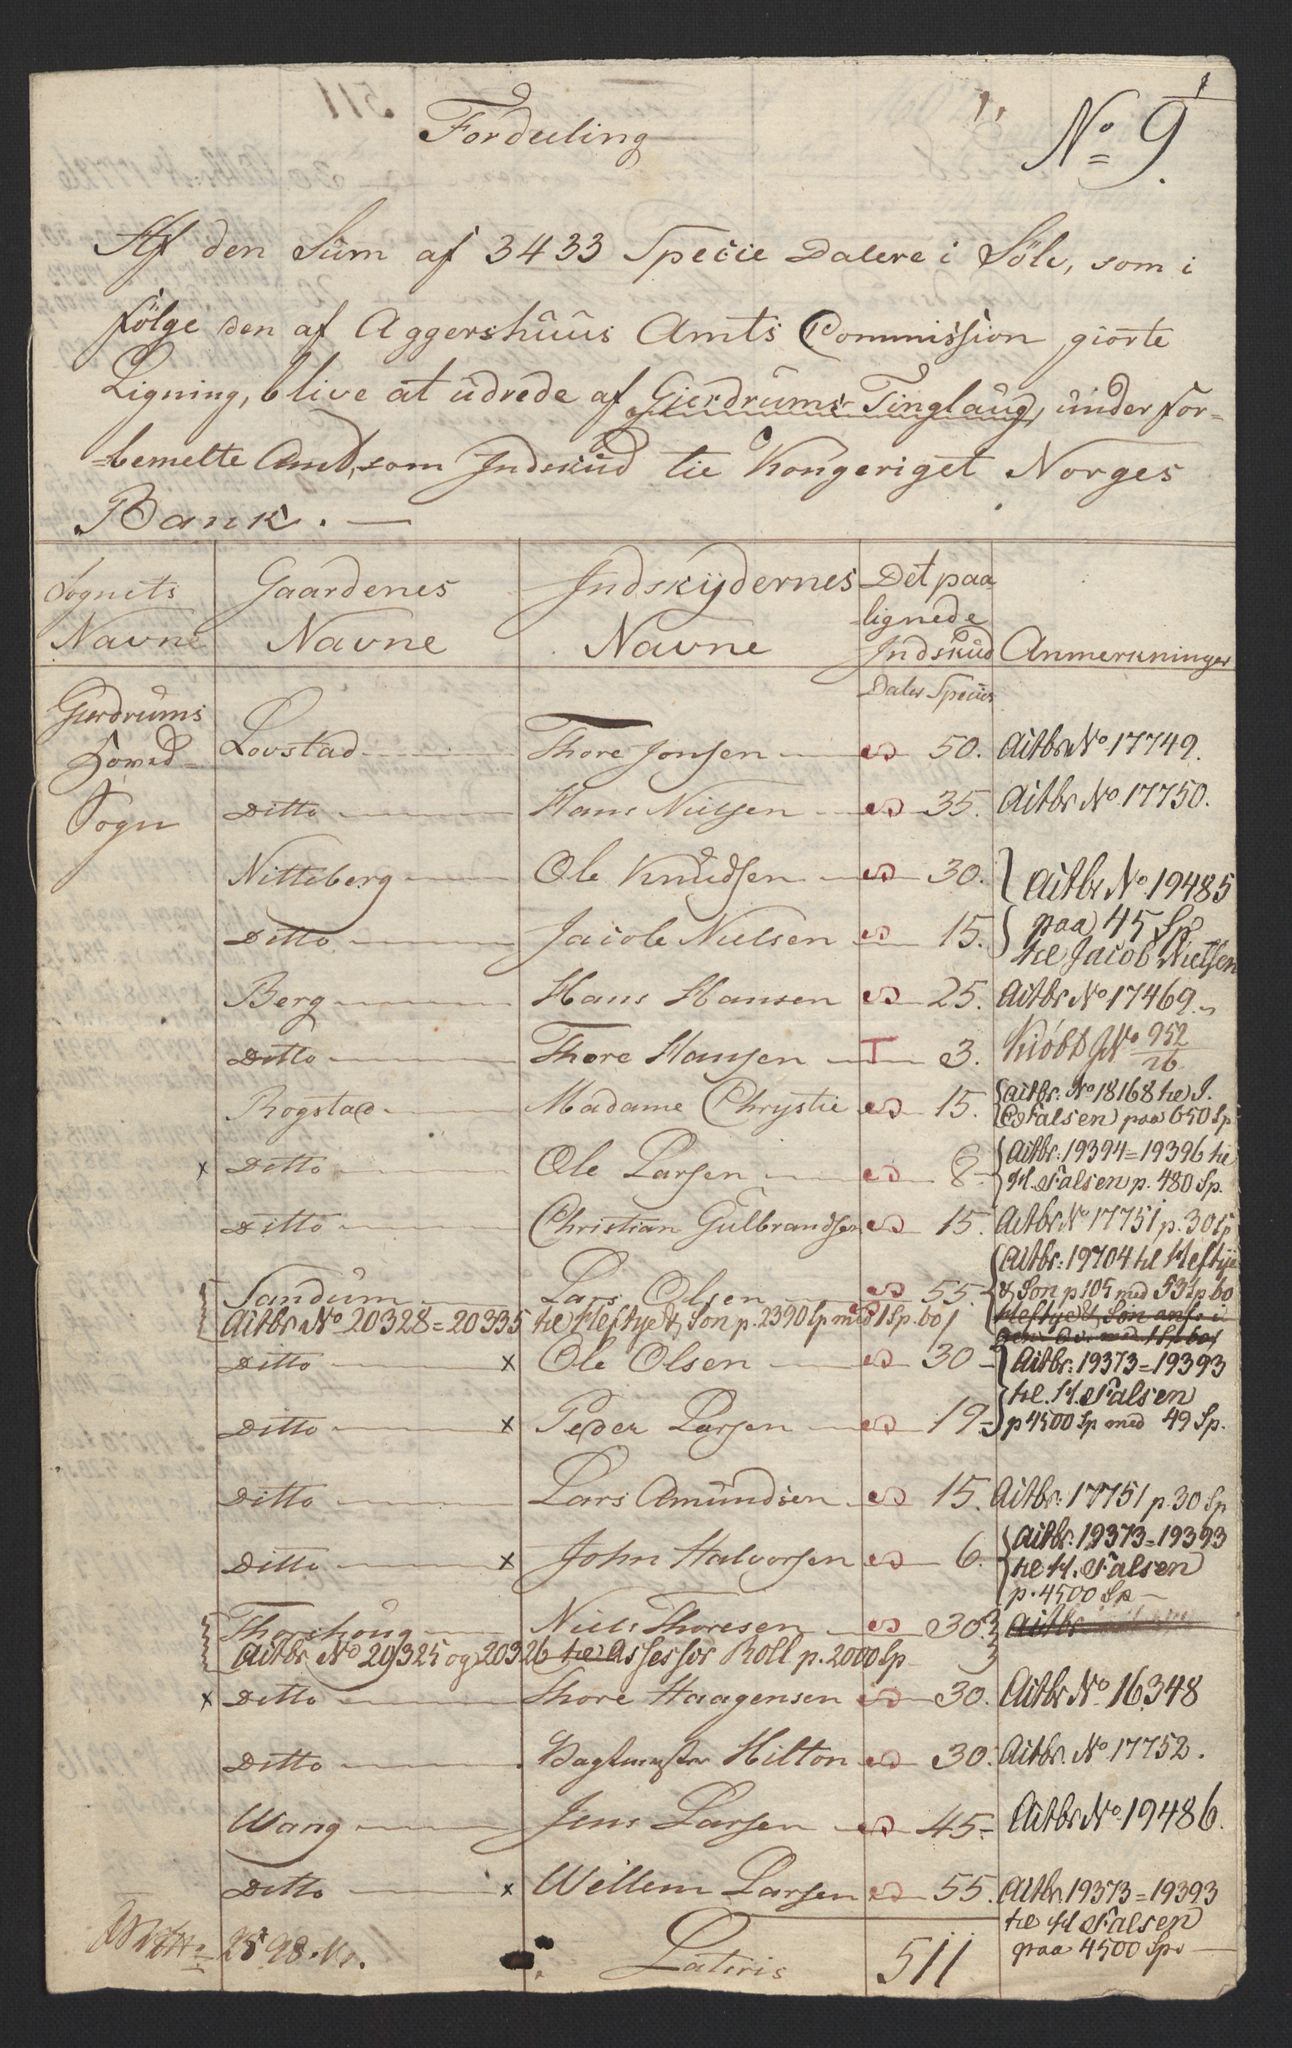 Fordeeling
No 9.
Af den Sum af 3433 Specie Dalere i Sölv, som i
fölge den af Aggershuus Amts Commission giorte
Ligning, blive at udrede af Gierdrums Tinglaug, under for-
-bemelte Amt, som Indskud til Kongeriget Norges
Bank. —
Sognets Navne | Gaardenes Navne | Indskydernes Navne | Det paalignede Indskud | Anmerkninger
Daler Species
Gierdrums Hoved-Sogn
Lovstad — Thore Jonsen — 50. Actbr No 17749.
Ditto — Hans Nielsen — 35. Actbr No 17750.
Nitteberg — Ole Knudsen — 30. } Actbr No 19485
Ditto — Jacob Nielsen — 15. } paa 45 Sp
til Jacob Nielsen
Berg — Hans Hansen — 25. Actbr No 17469.
Ditto — Thore Hansen — T 3. Kiöbt No 952/26
Rogstad — Madame Chrystie — 15. { Actbr. No 18168 til
Falsen paa 650 Sp
x Ditto — Ole Larsen — 8 — { Actbr. 19394=19396 til
H. Falsen p. 480 Sp.
Ditto — Christian Gulbrandsen — 15. Actbr No 17751 p. 30 Sp
Sandum — Lars Olsen — 55 — { Actbr: 19704 til Heftye
& Son p 105 med 53
Actbr No 20328=20335 til Heftye & Son p. 2390 Sp med 1 Sp.
Ditto — x Ole Olsen — 30 — } Actbr: 19373=19393
til H. Falsen
Ditto — x Peder Larsen — 19 — } p 4500 Sp med 49 Sp.
Ditto — Lars Amundsen — 15. Actbr: 17751 p. 30 Sp
Ditto — x John Halvorsen — 6. { Actbr. 19373=19393
til H. Falsen
p. 4500 Sp —
Thorshoug — Niels Thoresen — 30. Actbr
Actbr No 20325 og 20326 til Assessor Roll p. 2000 Sp
x Ditto — Thore Haagensen — 30. Actbr No 16348
Ditto — Vagtmester Hilton — 30. Actbr. No 17752.
Wang — Jens Larsen — 45 — Actbr No 19486.
Ditto — x Willem Larsen — 55. Actbr 19373=19393
til H Falsen
paa 4500 Sp —
2598
Lateris 511